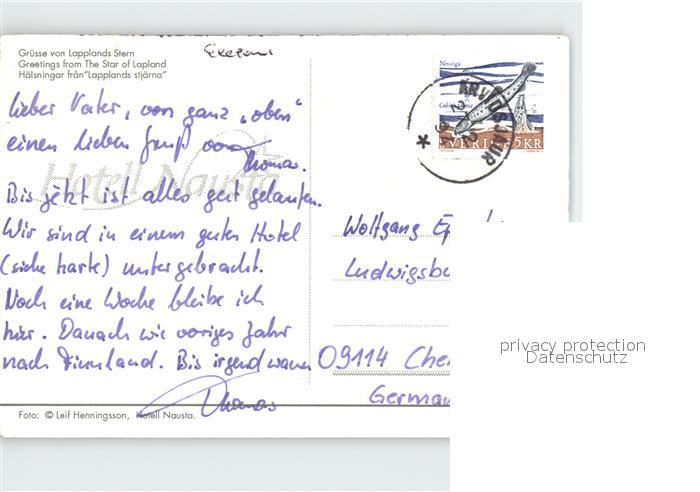 Grüsse von Lapplands Stern
Greetings from The Star of Lapland
Hälsningar från "Lapplands stjärna"
Lieber Vater, von ganz „oben“
einen lieben Gruß von
Thomas.
Hotell Nausta
Bis jetzt ist alles gut gelaufen.
Wir sind in einem guten Hotel
(siehe Karte) untergebracht.
Noch eine Woche bleibe ich
hier. Danach wie voriges Jahr
nach Finnland. Bis irgendwann
Thomas
Foto: © Leif Henningsson, Hotell Nausta.
Nissöga
ARVIDSJAUR
SVERIGE
KR
Wolfgang
Ludwigsbu
09114 Che
German
privacy protection
Datenschutz